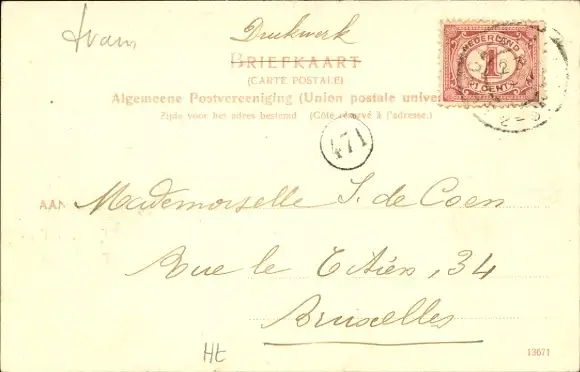 Drukwerk
BRIEFKAART
(CARTE POSTALE)
Algemeene Postvereeniging (Union postale univer
Zijde voor het adres bestemd (Côté réservé à l'adresse.)
NEDERLAND
1
CENT
471
AAN Mademoiselle J. de Coen
Rue le Titien, 34
Bruxelles
Ht
13671